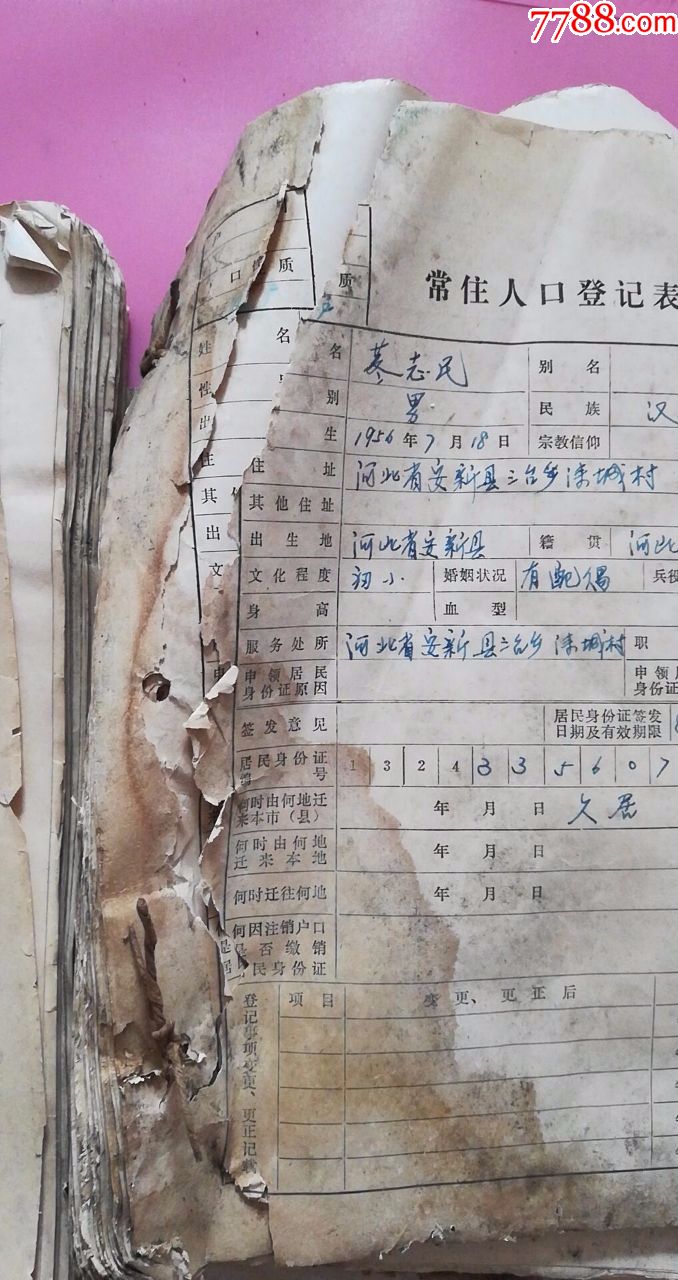 7788.com
常住人口登记表
口 质 质
姓 名 名 志民 别名
性 别 男 民族 汉
出 生 1956年7月18日 宗教信仰
住 住址 河北省安新县三台乡 城村
其 其他住址
出 出生地 河北省安新县 籍贯 河北
文 文化程度 初小 婚姻状况 有配偶 兵役
身高 血型
服务处所 河北省安新县三台乡 城村 职
申领居民身份证原因 申领居 身份证
签发意见 居民身份证签发日期及有效期限
居民身份证编号 1 3 2 4 3 3 5 6 0 7
何时由何地迁来本市(县) 年 月 日 久居
何时由何地迁来本地 年 月 日
何时迁往何地 年 月 日
何因注销户口
是否缴销
民身份证
登记事项变更、更正记载 项目 变更、更正后